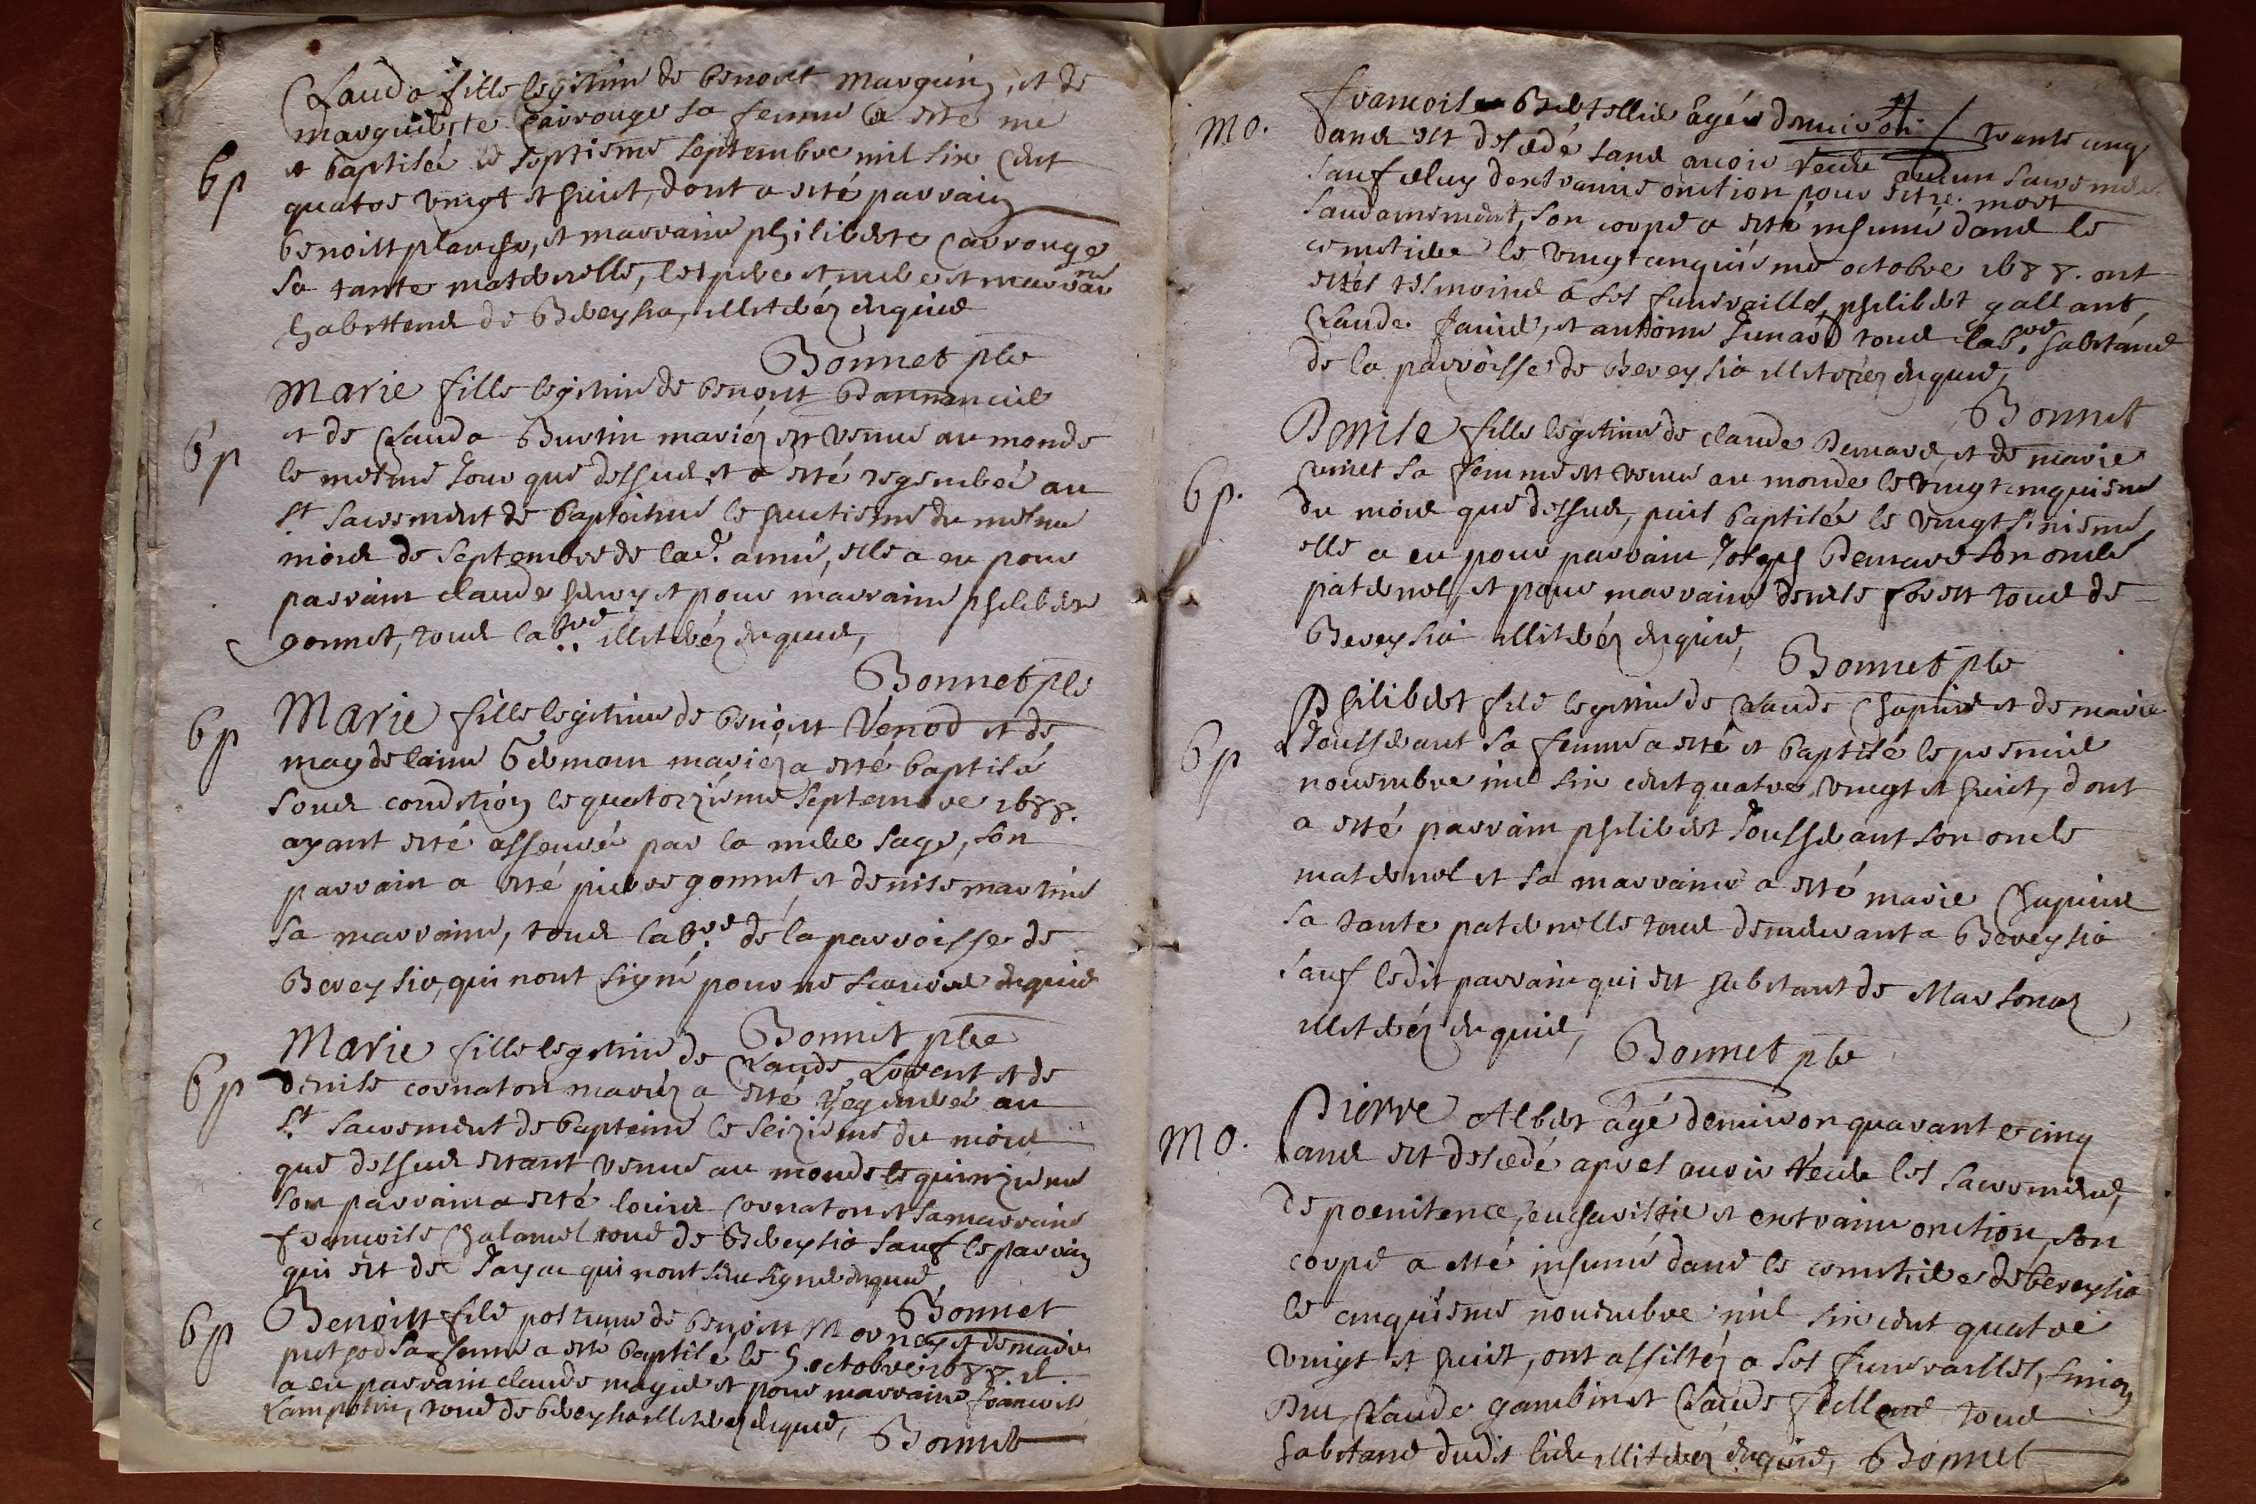 Clauda fille legitime de benoist marguin, et de
marguerite Carrouge sa femme a esté née
bp
et baptisée le septieme septembre mil six cent
quatre vingt et huict, dont a esté parrain
benoist planche, et marraine philiberte Carrouge
sa tante maternelle, les pere et mere et marraine
habittens de Bereysia, illiterez enquis
Bonnet pbre
Marie fille legitime de benoist
bp
et de Clauda Burtin mariez est venue au monde
le mesme jour que dessus et a esté regenerée au
st sacrement de baptesme le huictieme du mesme
mois de septembre de lad. année, elle a eu pour
parrain claude et pour marraine philiberte
gonnet, tous labrs illiterez enquis,
Bonnet pbre
bp
Marie fille legitime de benoist Venod et de
magdelaine Germain mariez a esté baptisé
sous condition le quatorzieme septembre 1688.
ayant esté asseuré par la mere sage, son
parrain a esté pierre gonnet, et denise martine
sa marraine, tous labrs de la parroisse de
Bereysia, qui nont signé pour ne scavoir enquis
Bonnet pbre
Marie fille legitime de Claude Lorent et de
bp
denise cornaton mariez a esté regenerée au
st sacrement de baptesme le seizieme du mois
que dessus estant venue au monde le quinzieme
son parrain a esté louis cornaton et sa marraine
francoise Chalamel tous de Bereysia sauf le parrain
qui est de Jayac qui nont sceu signer enquis
Bonnet
bp
Benoist fils postume de benoist Mornay et de marie
putod sa femme a esté baptisé le 5 octobre 1688 il
a eu parrain claude et pour marraine francoise
tous de bereysia illiterez enquis,
Bonnet
mo.
francois agé denviron trante cinq
ans est decedé sans avoir receu aucun sacremens
sauf celuy dextraime onction pour estre mort
soudainement, son corps a esté inhumé dans le
cemetiere le vingt cinquiéme octobre 1688. ont
estés tesmoins à ses funerailles, philibert gallant,
Claude et anthoine tous labrs habitans
de la parroisse de Bereysia illiterez enquis,
Bonnet
Denise fille legitime de claude et de marie
sa femme est venue au monde le vingt cinquieme
bp.
du mois que dessus, puis baptisée le vingt sixieme,
elle a eu pour parrain Joseph son oncle
paternel, et pour marraine denise tous de
Bereysia illiterez enquis,
Bonnet pbre
Philibert fils legitime de Claude Chapuis et de marie
bp
Jousserant sa femme a esté et baptisé le premier
novembre mil six cent quatre vingt et huict, dont
a esté parrain philibert Jousserant son oncle
maternel et sa marraine a esté marie Chapuis
sa tante paternelle tous demeurant a Bereysia
sauf ledit parrain qui est habitant de Marsonas
illiterez enquis,
Bonnet pbre
Pierre Albert âgé denviron quarante cinq
mo.
ans est decedé apres avoir receu les sacremens,
de poenitence, eucharistie et extraime onction, son
corps a esté inhumé dans le cemetiere de bereysia
le cinquiéme novembre mil six cent quatre
vingt et huict, ont assistéz a ses funerailles, simon
Claude gambin et Claude tous
habitans dudit lieu illiterez enquis, Bonnet